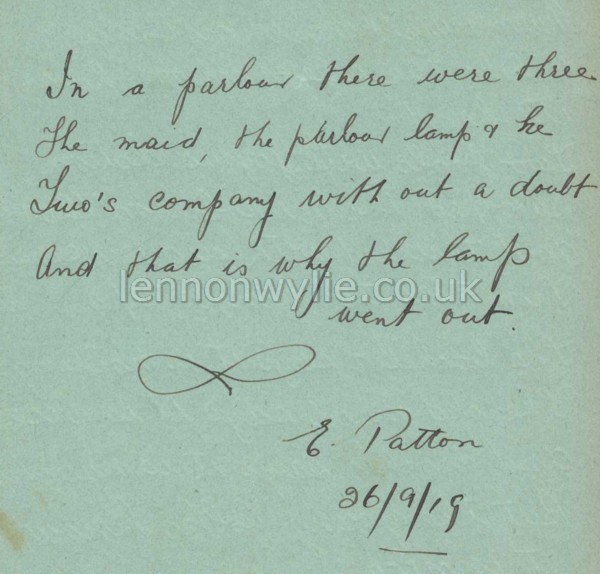 In a parlour there were three
The maid, the parlour lamp & he
Two's company with out a doubt
And that is why the lamp
lennonwylie.co.uk
went out.
E. Patton
26/9/19